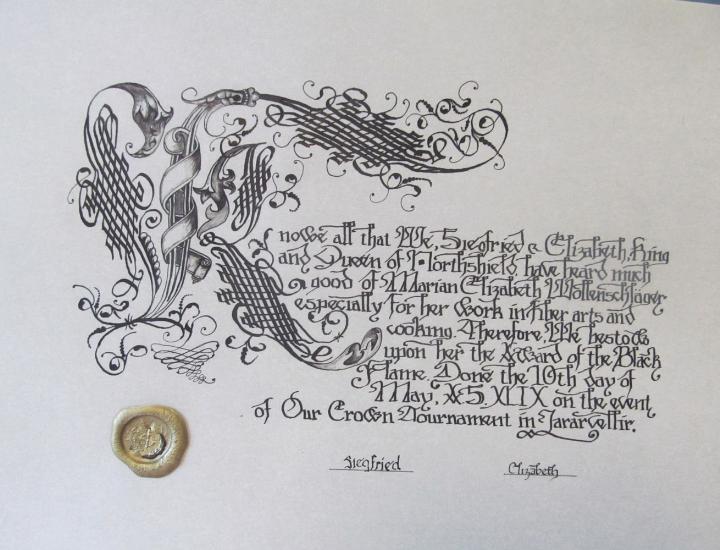 Knowe all that We, Siegfried & Elizabeth, King
and Queen of Northshield, have heard much
good of Marian Elizabeth Wollenschlager
especially for her work in fiber arts and
cooking. Therefore, We bestow
upon her the Award of the Black
Flame. Done the 10th day of
May, A.S. XLIX on the event
of Our Crown Tournament in Jararvellir.
Siegfried
Elizabeth